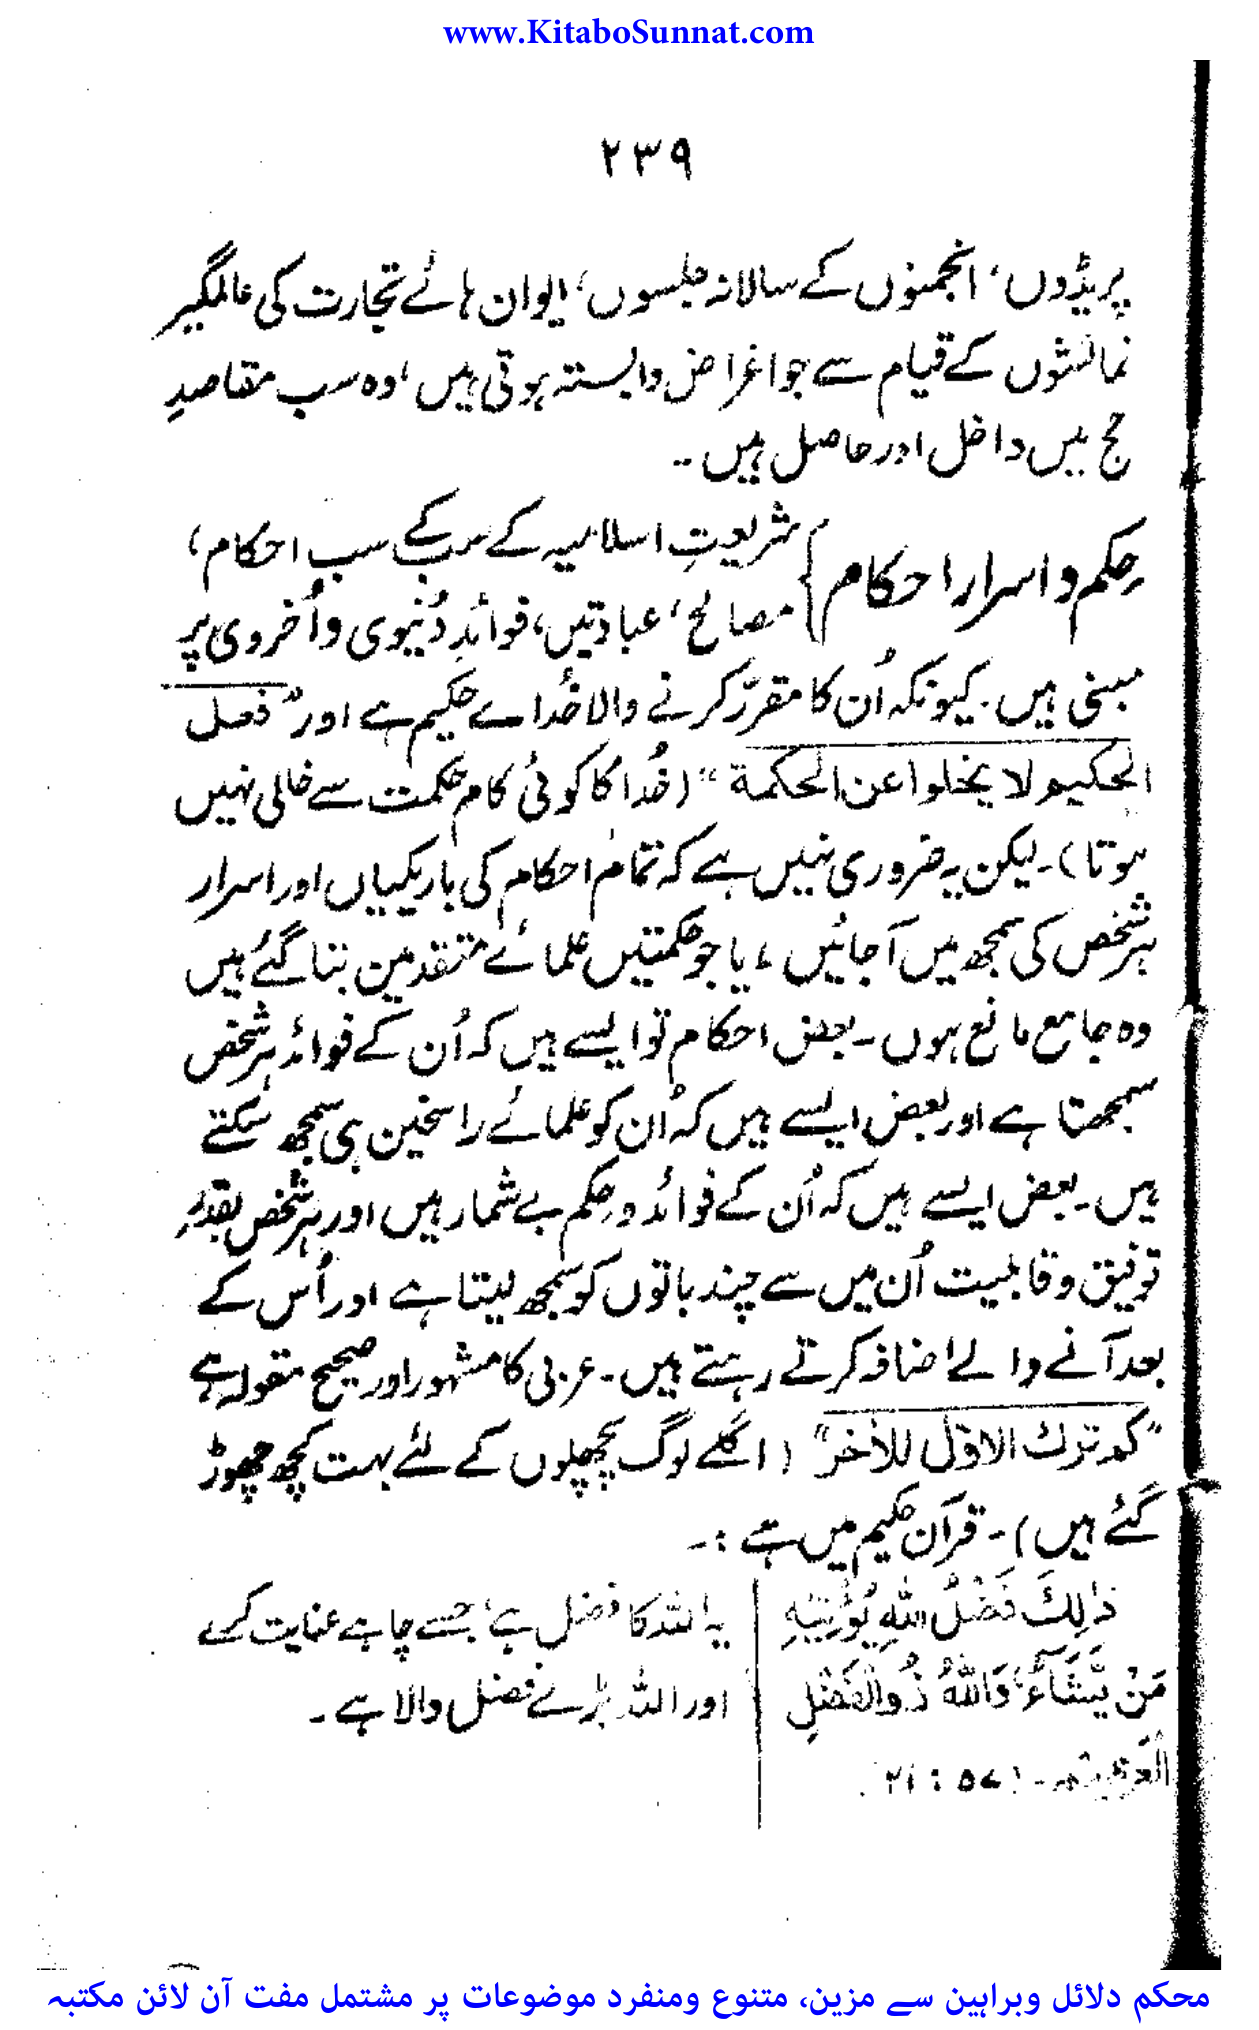 www.KitaboSunnat.com
۲۳۹
پریڈوں، انجمنوں کے سالانہ جلسوں، ایوان ہائے تجارت کی عالمگیر
نمائشوں کے قیام سے جو اغراض وابستہ ہوتی ہیں، وہ سب مقاصدِ
حج میں داخل اور حاصل ہیں۔
حِکم و اسرار احکام } شریعتِ اسلامیہ کے سب کے سب احکام،
مصالح، عبادتیں، فوائدِ دُنیوی و اُخروی پر
مبنی ہیں۔ کیونکہ اُن کا مقرّر کرنے والا خُدائے حکیم ہے اور ”فعل
الحکیم لا یخلوا عن الحکمة“ (خُدا کا کوئی کام حکمت سے خالی نہیں
ہوتا)۔ لیکن یہ ضروری نہیں ہے کہ تمام احکام کی باریکیاں اور اسرار
ہر شخص کی سمجھ میں آ جائیں، یا جو حکمتیں علمائے متقدمین بتا گئے ہیں
وہ جامع مانع ہوں۔ بعض احکام تو ایسے ہیں کہ اُن کے فوائد ہر شخص
سمجھتا ہے اور بعض ایسے ہیں کہ اُن کو علمائے راسخین ہی سمجھ سکتے
ہیں۔ بعض ایسے ہیں کہ اُن کے فوائد و حِکم بے شمار ہیں اور ہر شخص بقدرِ
توفیق و قابلیت اُن میں سے چند باتوں کو سمجھ لیتا ہے اور اُس کے
بعد آنے والے اضافہ کرتے رہتے ہیں۔ عربی کا مشہور اور صحیح مقولہ ہے
”کم ترك الاوّل للآخر“ (اگلے لوگ پچھلوں کے لئے بہت کچھ چھوڑ
گئے ہیں)۔ قرآن حکیم میں ہے :۔
ذٰلِكَ فَضْلُ اللّٰهِ يُؤْتِيْهِ
مَنْ يَّشَآءُ ؕ وَاللّٰهُ ذُوالْفَضْلِ
الْعَظِيْمِ۔ (۵۷ : ۲۱
یہ اللہ کا فضل ہے، جسے چاہے عنایت کرے
اور اللہ بڑے فضل والا ہے۔
محکم دلائل وبراہین سے مزین، متنوع ومنفرد موضوعات پر مشتمل مفت آن لائن مکتبہ